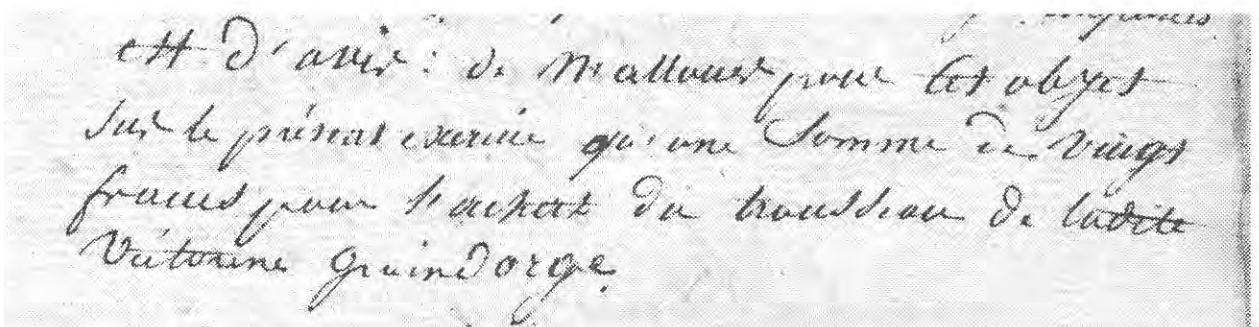 est d'avis : de N'allouer pour cet objet
sur le présent exercice qu'une Somme de vingt
francs pour l'achat du trousseau de ladite
Victorine Graindorge.